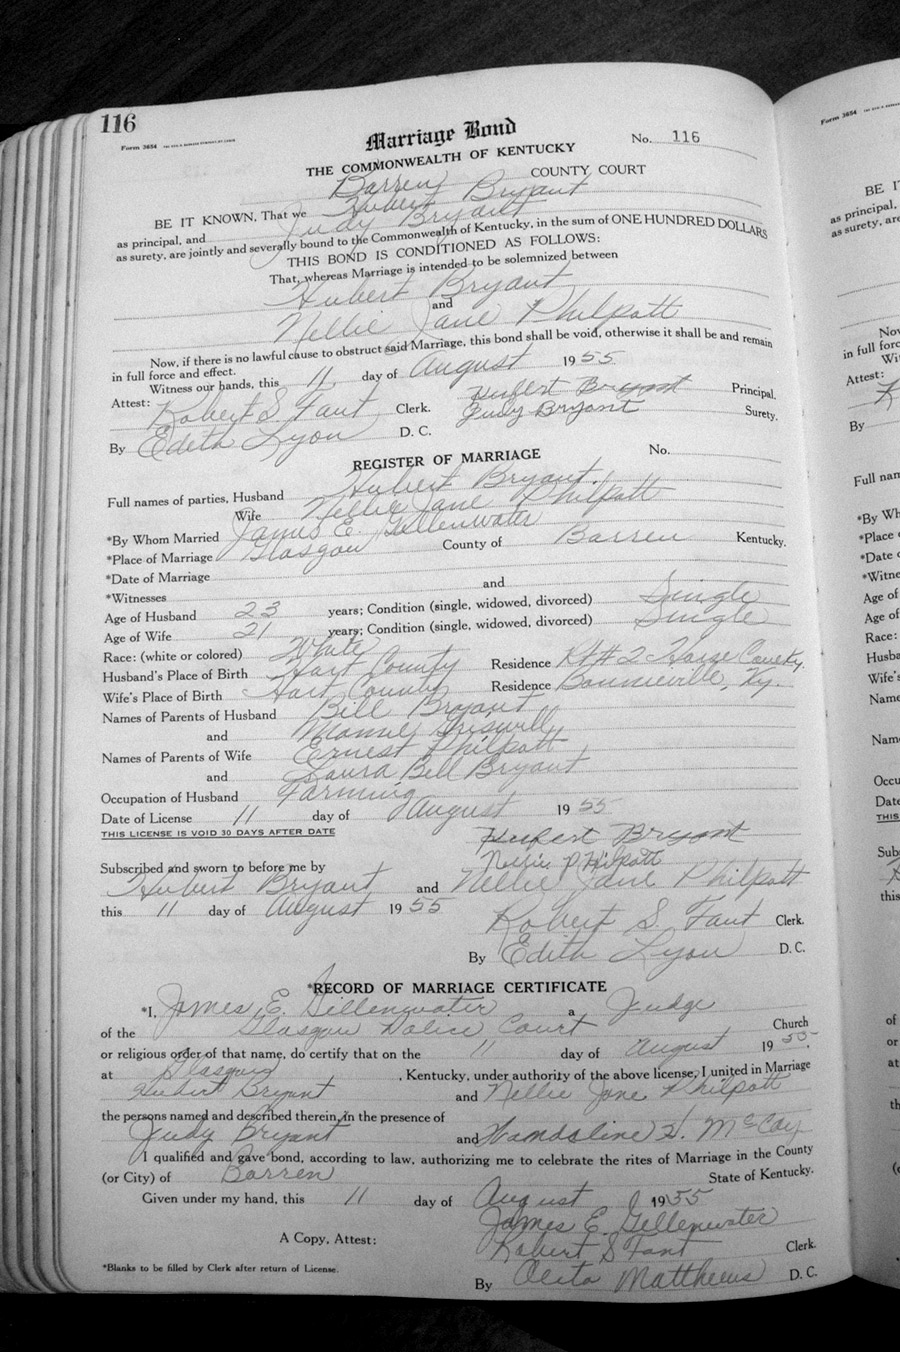 116
Form 3654
Marriage Bond
No. 116
THE COMMONWEALTH OF KENTUCKY
Barren COUNTY COURT
BE IT KNOWN, That we Hubert Bryant
as principal, and Judy Bryant
as surety, are jointly and severally bound to the Commonwealth of Kentucky, in the sum of ONE HUNDRED DOLLARS
THIS BOND IS CONDITIONED AS FOLLOWS:
That, whereas Marriage is intended to be solemnized between
Hubert Bryant
and
Nellie Jane Philpott
Now, if there is no lawful cause to obstruct said Marriage, this bond shall be void, otherwise it shall be and remain
in full force and effect.
Witness our hands, this 11 day of August 1955
Attest: Hubert Bryant Principal.
Robert S. Fant Clerk. Judy Bryant Surety.
By Edith Lyon D. C.
REGISTER OF MARRIAGE No.
Full names of parties, Husband Hubert Bryant.
Wife Nellie Jane Philpott
*By Whom Married James E. Gillenwater
*Place of Marriage Glasgow County of Barren Kentucky.
*Date of Marriage
*Witnesses and
Age of Husband 23 years; Condition (single, widowed, divorced) Single
Age of Wife 21 years; Condition (single, widowed, divorced) Single
Race: (white or colored) White
Husband's Place of Birth Hart County Residence Rt # 2 Horse Cave Ky.
Wife's Place of Birth Hart County Residence Bonnieville, Ky.
Names of Parents of Husband Bill Bryant
and Griswell
Names of Parents of Wife Ernest Philpott
and Laura Bell Bryant
Occupation of Husband Farming
Date of License 11 day of August 1955
THIS LICENSE IS VOID 30 DAYS AFTER DATE
Hubert Bryant
Nellie Philpott
Subscribed and sworn to before me by
Hubert Bryant and Nellie Jane Philpott
this 11 day of August 1955
Robert S. Fant Clerk.
By Edith Lyon D. C.
*RECORD OF MARRIAGE CERTIFICATE
*I, James E. Gillenwater a Judge
of the Glasgow Police Court Church
or religious order of that name, do certify that on the 11 day of August 1955.
at Glasgow, Kentucky, under authority of the above license, I united in Marriage
Hubert Bryant and Nellie Jane Philpott
the persons named and described therein, in the presence of
Judy Bryant and H. McCoy
I qualified and gave bond, according to law, authorizing me to celebrate the rites of Marriage in the County
(or City) of Barren State of Kentucky.
Given under my hand, this 11 day of August 1955
James E. Gillenwater
A Copy, Attest: Robert S Fant Clerk.
*Blanks to be filled by Clerk after return of License.
By Matthews D. C.
Form 3654
BE IT
as principal,
as surety, are
Now
in full force
Wi
Attest:
By
Full nam
*By Wh
*Place
*Date
*Witne
Age of
Age of
Race:
Husba
Wife's
Name
Nam
Occu
Date
THIS
Sub
this
of
or
at
th